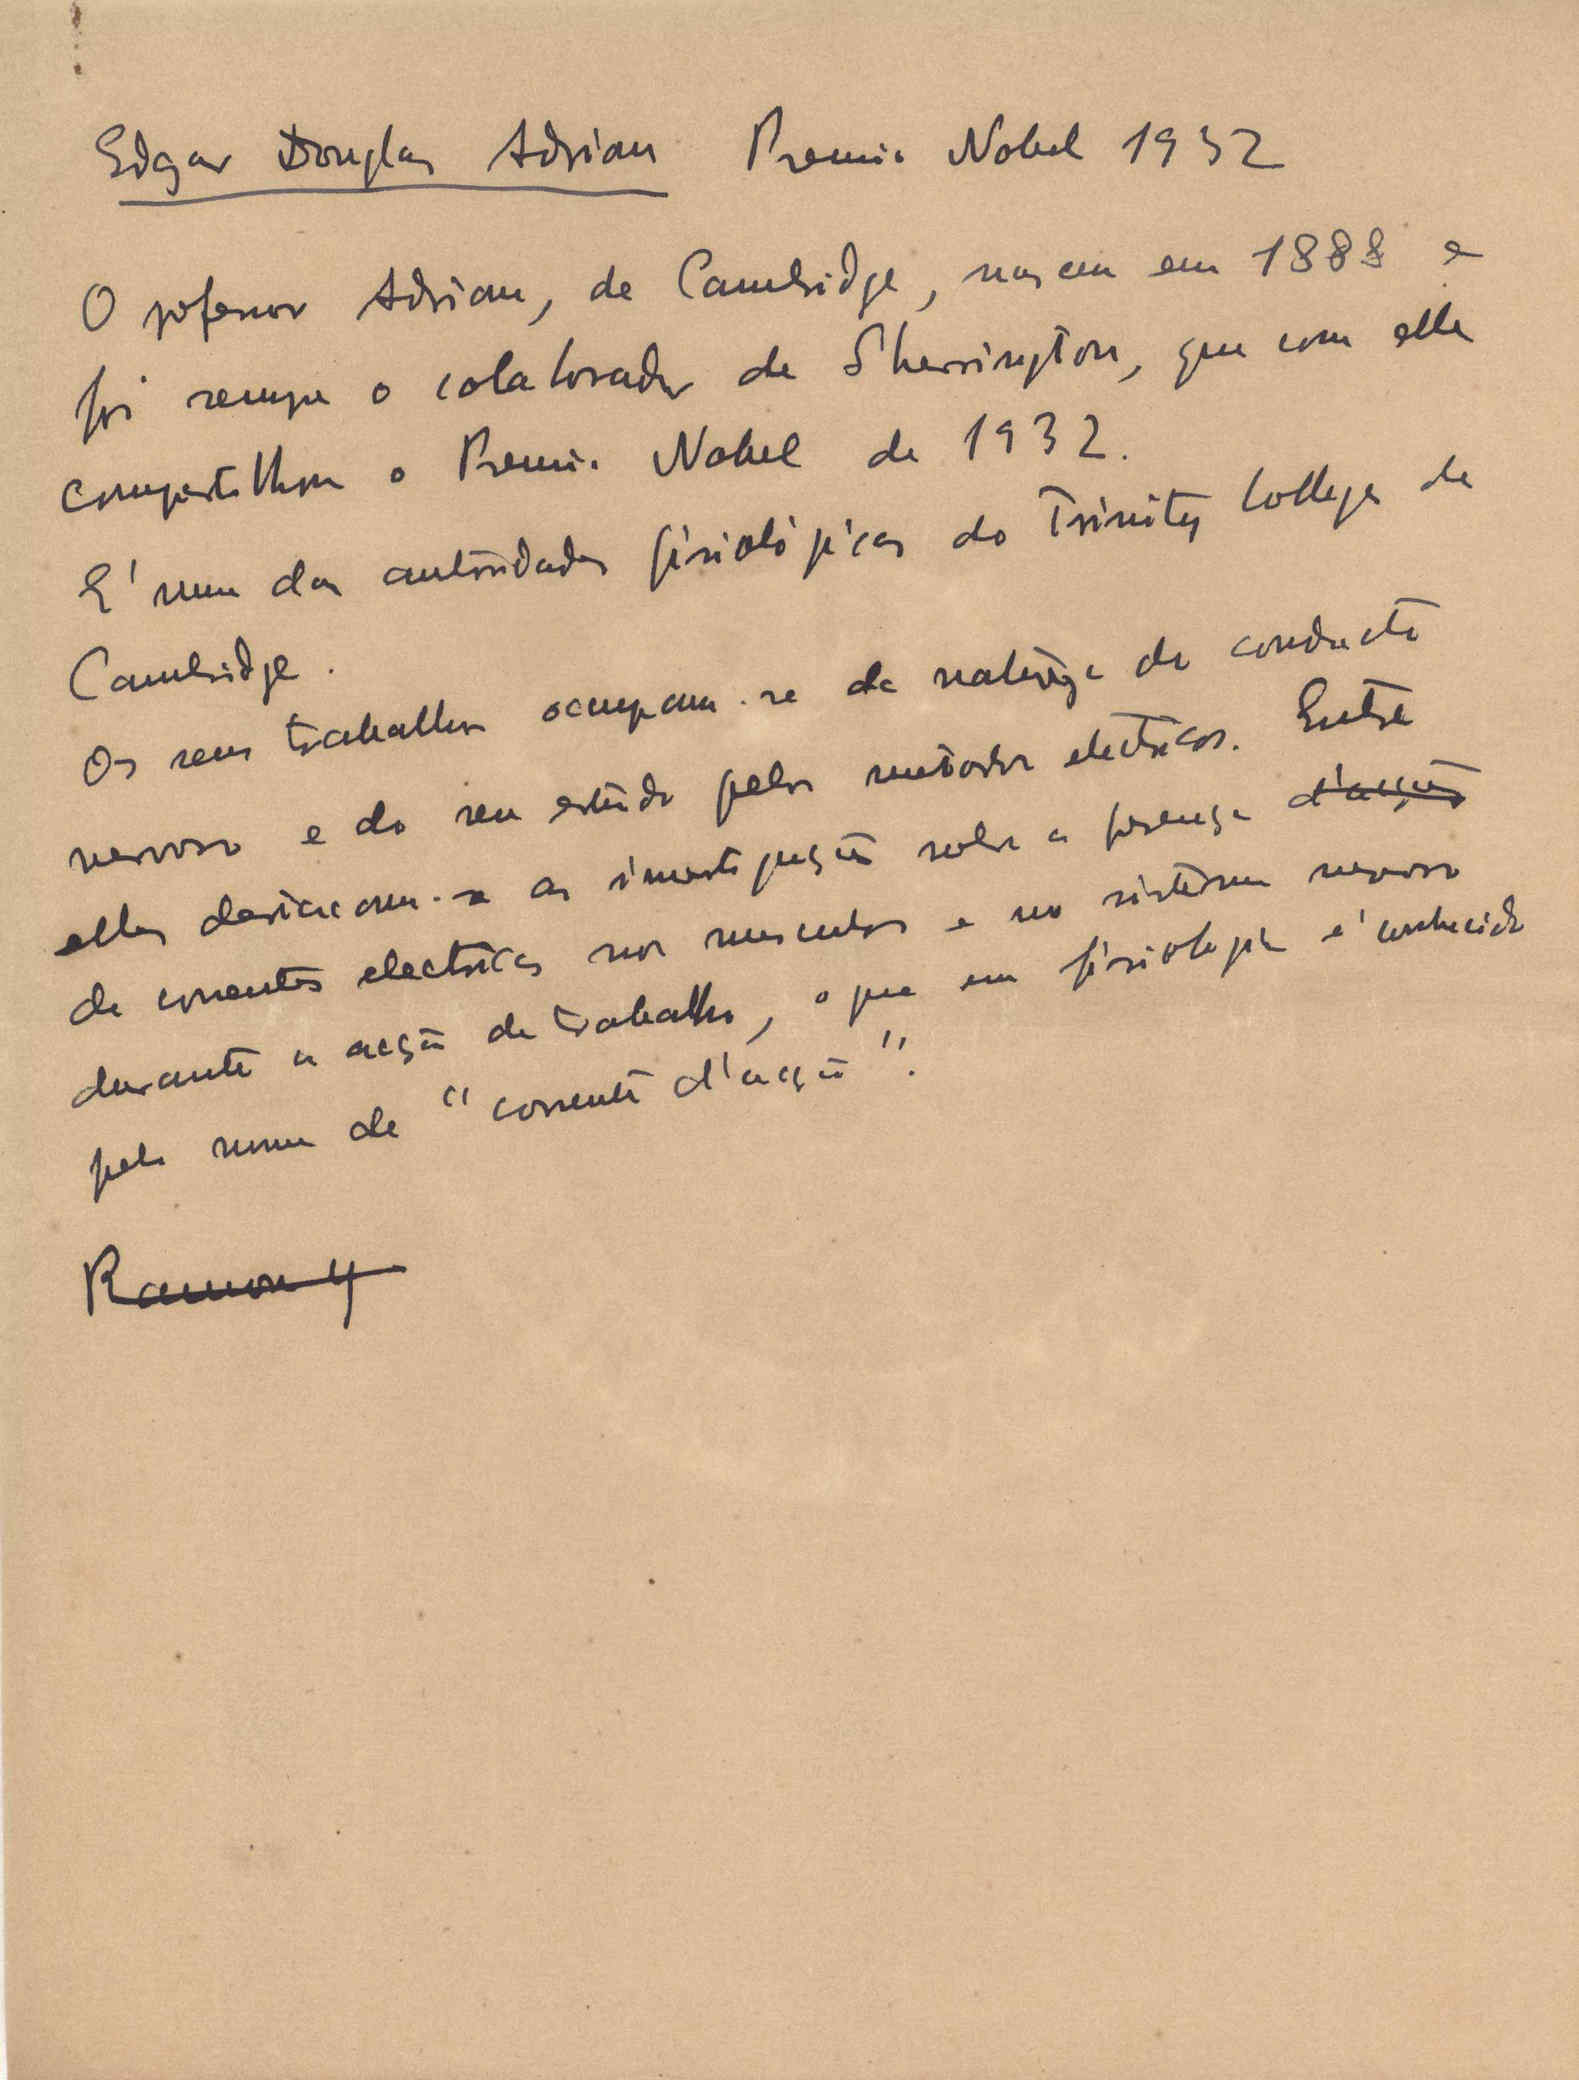 Edgar Douglas Adrian Premio Nobel 1932
O professor Adrian, de Cambridge, nasceu em 1888 e
foi sempre o colaborador de Sherrington, que com elle
compartilhou o Premio Nobel de 1932.
É uma das autoridades fisiológicas do Trinity College de
Cambridge.
Os seus trabalhos occupam-se da natureza do conducto
nervoso e do seu estudo pelos metodos electricos. Entre
elles destacam-se as investigações sobre a presença d'acção
de correntes electricas nos musculos e no sistema nervoso
durante a acção de trabalho, o que em fisiologia é conhecido
pelo nome de "corrente d'acção".
Ramon y